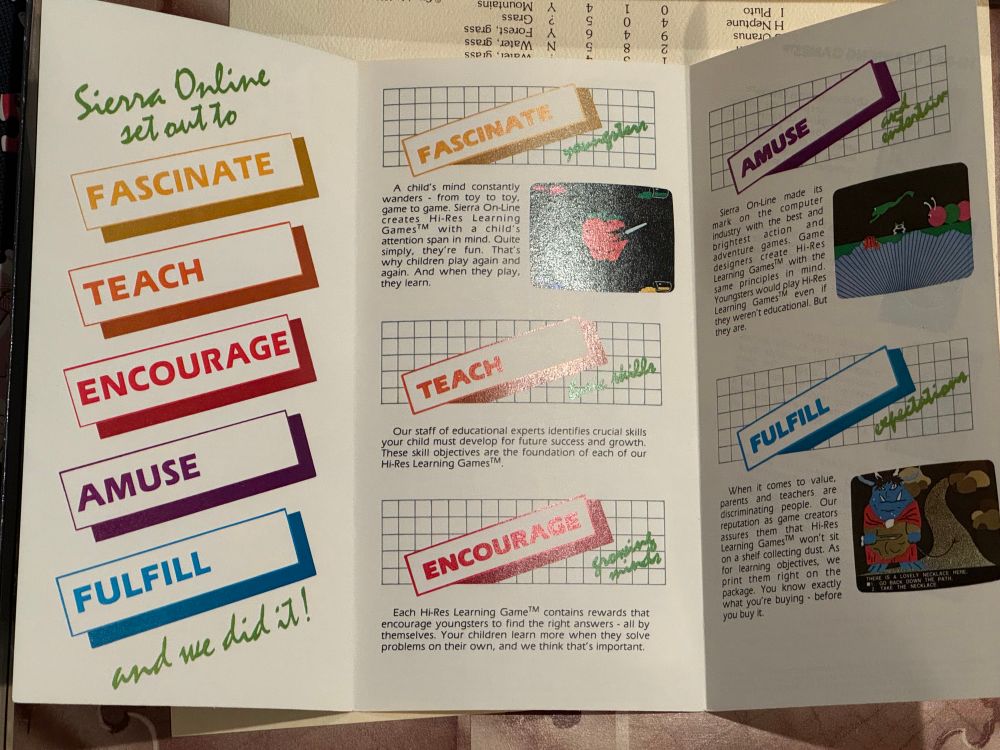 Sierra Online
set out to
FASCINATE
TEACH
ENCOURAGE
AMUSE
FULFILL
and we did it!
FASCINATE
youngsters
A child's mind constantly
wanders - from toy to toy,
game to game. Sierra On-Line
creates Hi-Res Learning
Games™ with a child's
attention span in mind. Quite
simply, they're fun. That's
why children play again and
again. And when they play,
they learn.
TEACH
basic skills
Our staff of educational experts identifies crucial skills
your child must develop for future success and growth.
These skill objectives are the foundation of each of our
Hi-Res Learning Games™.
ENCOURAGE
growing
minds
Each Hi-Res Learning Game™ contains rewards that
encourage youngsters to find the right answers - all by
themselves. Your children learn more when they solve
problems on their own, and we think that's important.
AMUSE
and
entertain
Sierra On-Line made its
mark on the computer
industry with the best and
brightest action and
adventure games. Game
designers create Hi-Res
Learning Games™ with the
same principles in mind.
Youngsters would play Hi-Res
Learning Games™ even if
they weren't educational. But
they are.
FULFILL
expectations
When it comes to value,
parents and teachers are
discriminating people. Our
reputation as game creators
assures them that Hi-Res
Learning Games™ won't sit
on a shelf collecting dust. As
for learning objectives, we
print them right on the
package. You know exactly
what you're buying - before
you buy it.
THERE IS A LOVELY NECKLACE HERE.
1. GO BACK DOWN THE PATH.
2. TAKE THE NECKLACE
2 8 5 N Water, grass
Uranus 9 4 6 Y Forest, grass
H Neptune 4 0 5 ? Grass
I Pluto 0 1 4 Y Mountains